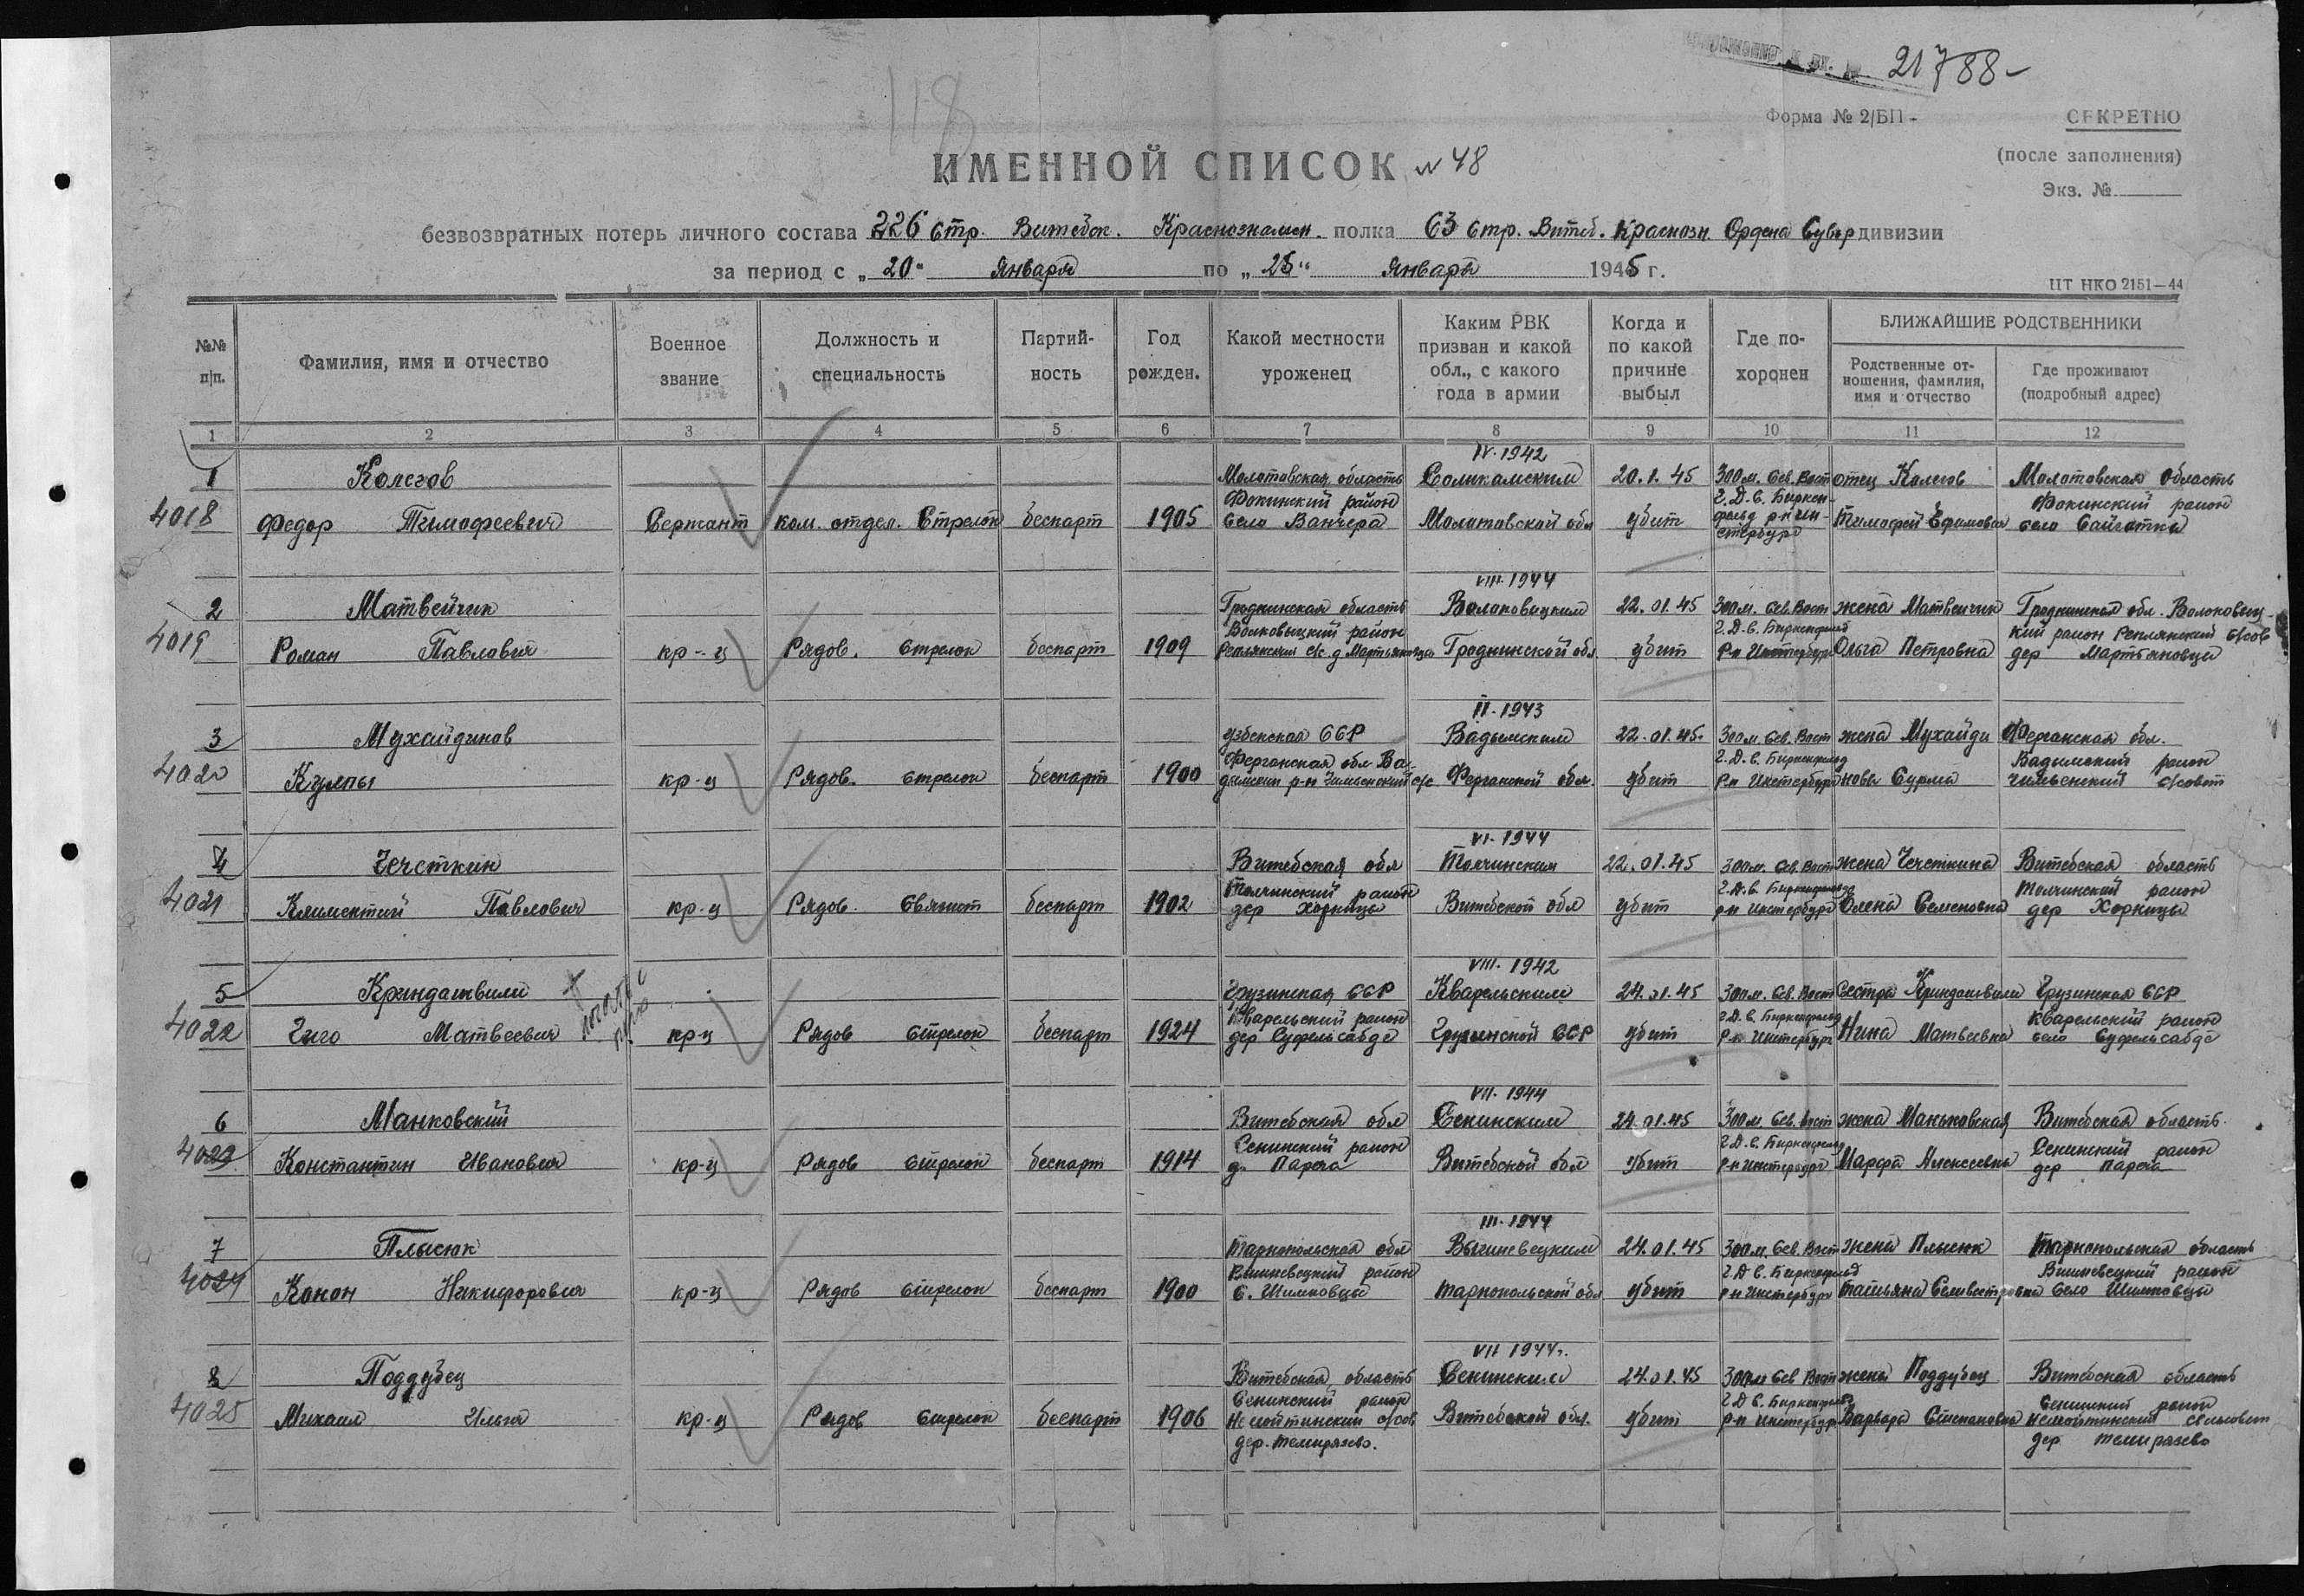 21788-
Форма № 2/БП-
СЕКРЕТНО
(после заполнения)
Экз. №
118
ИМЕННОЙ СПИСОК N 48
безвозвратных потерь личного состава 226 Стр. Витебск. Краснознамен. полка 63 Стр. Витеб. Краснозн. Ордена Сувор дивизии
за период с „20“ Января по „25“ Января 1945 г.
ЦТ НКО 2151—44
№№ п/п.
Фамилия, имя и отчество
Военное звание
Должность и специальность
Партий-ность
Год рожден.
Какой местности уроженец
Каким РВК призван и какой обл., с какого года в армии
Когда и по какой причине выбыл
Где по-хоронен
БЛИЖАЙШИЕ РОДСТВЕННИКИ
Родственные от-ношения, фамилия, имя и отчество
Где проживают (подробный адрес)
1 2 3 4 5 6 7 8 9 10 11 12
IV-1942
1 Колегов Молотовская область Соликамским 20.1.45 300м. Сев. Вост отец Колегов Молотовская область
Фокинский район г. Д. в. Биркен- Фокинский район
4018 Федор Тимофеевич Сержант ком. отдел. Стрелок беспарт 1905 село Ванчера Молотовской обл убит фельд р-н Ин- Тимофей Ефимович село Сайгатка
стербург
VIII-1944
2 Матвейчик Гроднинская область Волоковыцким 22.01.45 300м. Сев. Вост жена Матвейчик Гроднинская обл. Волоковыц-
Волковыцкий район г. Д. в. Биркенфельд кий район Реплянский с/сов
4019 Роман Павлович кр-ц Рядов. Стрелок беспарт 1909 Реплянский с/с. д. Мартьяновцы Гроднинской обл. убит р-н Инстербург Ольга Петровна дер Мартьяновцы
II-1943
3 Мухайдинов Узбекская ССР Вадымским 22.01.45. 300м. Сев. Вост жена Мухайди Ферганская обл.
Ферганская обл Ва- г. Д. в. Биркенфельд Вадымский район
4020 Кулпы кр-ц Рядов. Стрелок беспарт 1900 дымский р-н Чимьенский с/с Ферганской обл. убит р-н Инстербург нова Сурма Чимьенский с/совет
VI-1944
4 Чечеткин Витебская обл Толчинским 22.01.45 300м. Сев. Вост жена Чечеткина Витебская область
Толчинский район г. Д. в. Биркенфельд Толчинский район
4021 Климентий Павлович кр-ц Рядов. Связист беспарт 1902 дер Хорницы Витебской обл убит р-н Инстербург Олена Семеновна дер Хорницы
VIII-1942
5 Крындашвили Грузинская ССР Кварельским 24.01.45 300м. Сев. Вост сестра Крындашвили Грузинская ССР
Кварельский район г. Д. в. Биркенфельд Кварельский район
4022 Гиго Матвеевич кр-ц Рядов Стрелок беспарт 1924 дер Суфельсабде Грузинской ССР убит р-н Инстербург Нина Матвеевна село Суфельсабде
VII-1944
6 Манковский Витебская обл Сенинским 24.01.45 300м. Сев. Вост жена Маньковская Витебская область.
Сенинский район г. Д. в. Биркенфельд Сенинский район
4023 Константин Иванович кр-ц Рядов Стрелок беспарт 1914 д. Парсча Витебской обл убит р-н Инстербург Марфа Алексеевна дер Парсча
III-1944
7 Плысюк Тарнопольская обл Вышневецким 24.01.45 300м. Сев. Вост жена Плысюк Тарнопольская область
Вышневецкий район г. Д. в. Биркенфельд Вишневецкий район
4024 Конон Никифорович кр-ц Рядов Стрелок беспарт 1900 с. Шимковцы Тарнопольской обл убит р-н Инстербург Татьяна Селивестровна село Шимковцы
VII 1944г.
8 Поддубец Витебская область Сенинским 24.01.45 300м Сев Вост жена Поддубец Витебская область
Сенинский район г. Д. в. Биркенфельд Сенинский район
4025 Михаил Ильич кр-ц Рядов Стрелок беспарт 1906 Немойтинский с/сов. Витебской обл. убит р-н Инстербург Варвара Степановна Немойтинский сельсовет
дер. Темирязево. дер Темирязево